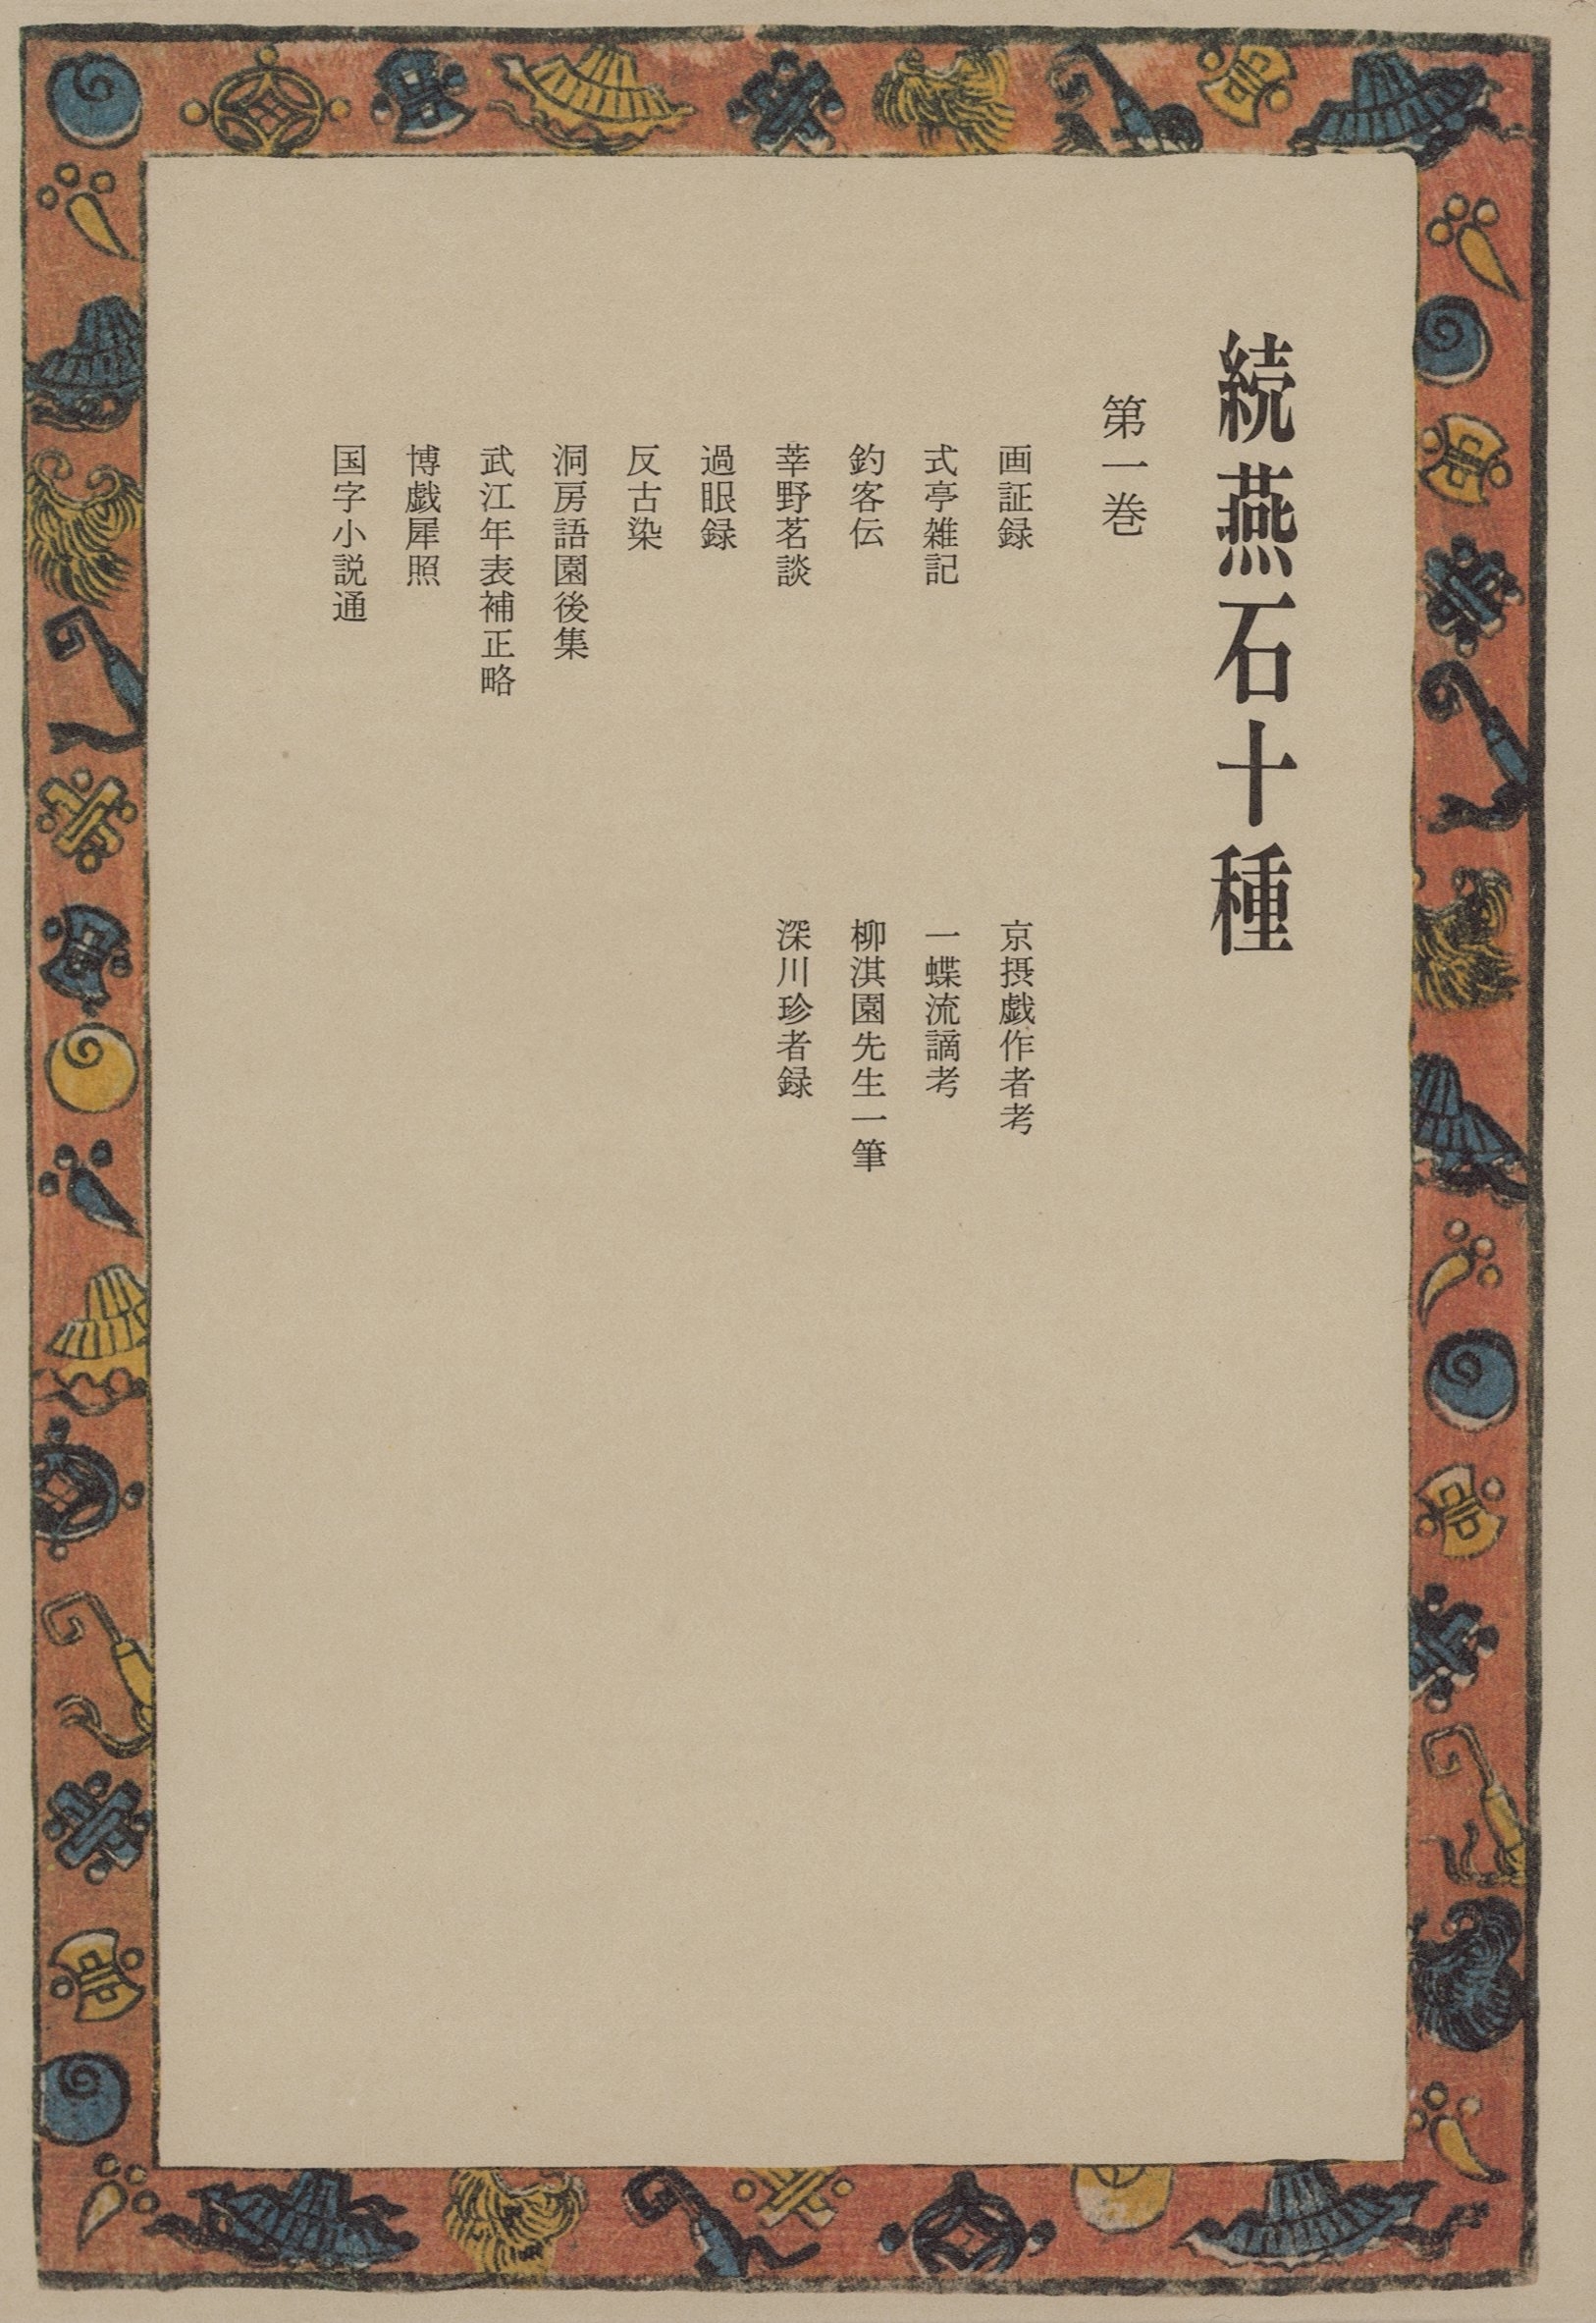 続燕石十種
第一巻
画証録
式亭雑記
釣客伝
莘野茗談
過眼録
反古染
洞房語園後集
武江年表補正略
博戯犀照
国字小説通
京摂戯作者考
一蝶流謫考
柳淇園先生一筆
深川珍者録